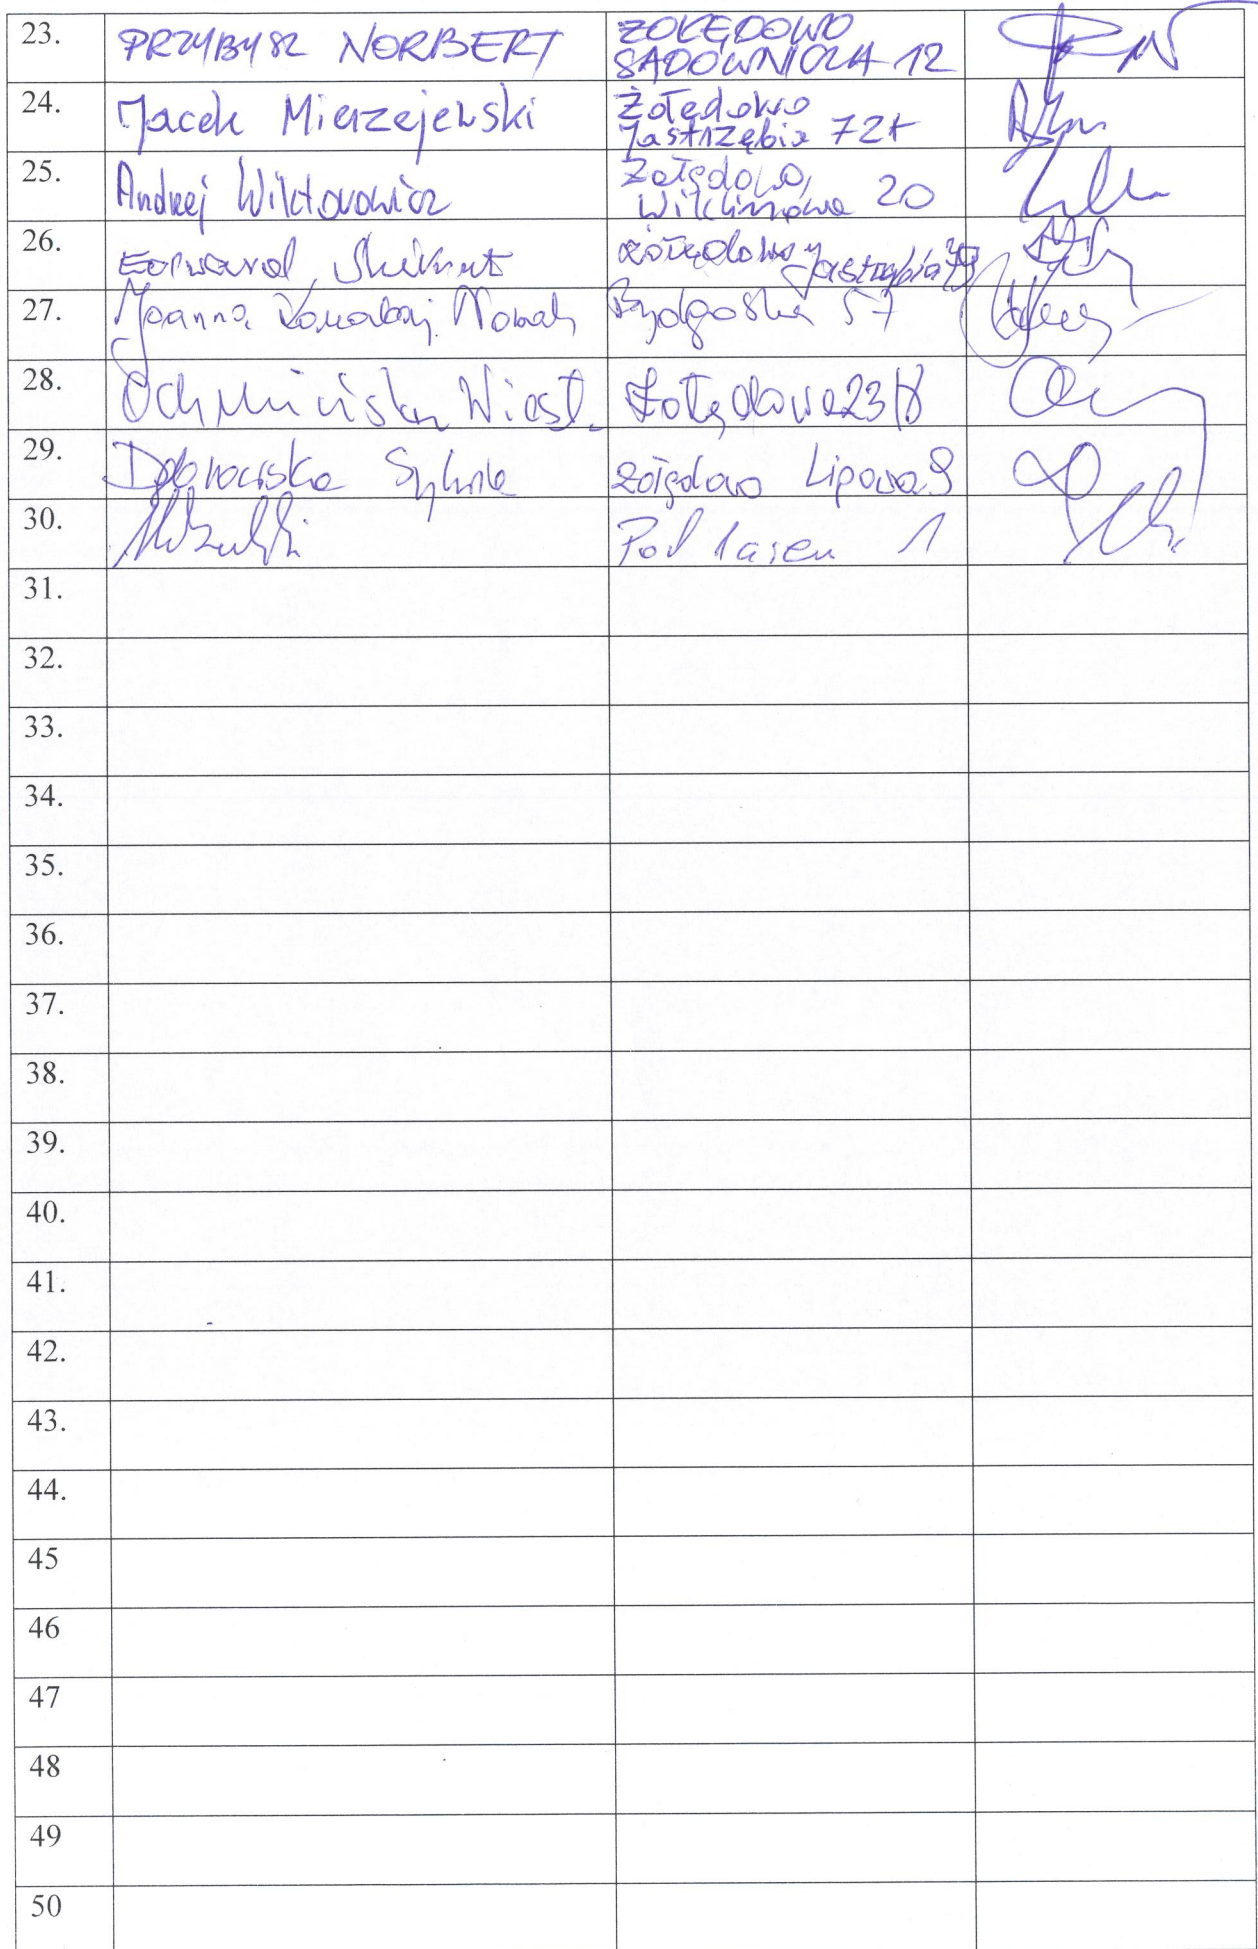 23. PRZYBYSZ NORBERT ŻOŁĘDOWO
SADOWNICZA 12
24. Jacek Mierzejewski Żołędowo
Jastrzębia 72t
25. Andrzej Wiktorowicz Żołędowo,
Wiklinowa 20
26. Edward Żołędowo, Jastrzębia
27. Joanna Nowak Bydgoska 57
28. Wiesł. Żołędowo 23/8
29. Sylwia Żołędowo Lipowa 9
30. Pod lasem 1
31.
32.
33.
34.
35.
36.
37.
38.
39.
40.
41.
42.
43.
44.
45
46
47
48
49
50